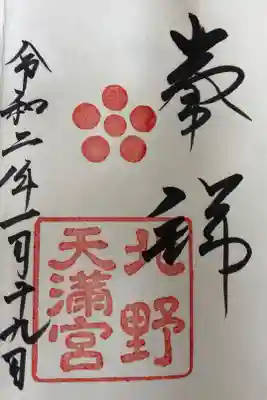 北野
天満宮
令和二年一月十九日